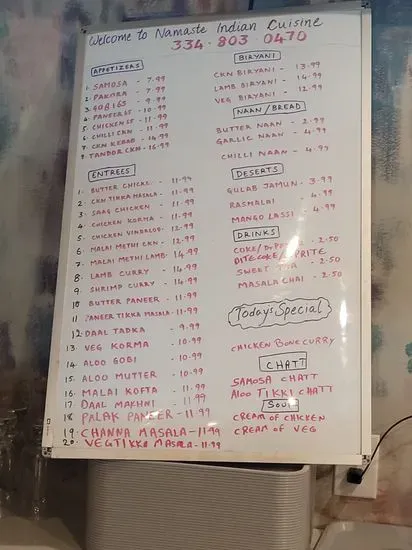 Welcome to Namaste Indian Cuisine
334-803-0470
APPETIZERS
1. SAMOSA - 7.99
2. PAKORA - 7.99
3. GOBI 65 - 9.99
4. PANEER 65 - 10.99
5. CHICKEN 65 - 11.99
6. CHILLI CKN - 11.99
7. CKN KEBAB - 14.99
8. TANDOR CKN - 16.99
ENTREES
1. BUTTER CHICKE - 11.99
2. CKN TIKKA MASALA - 11.99
3. SAAG CHICKEN - 11.99
4. CHICKEN KORMA - 11.99
5. CHICKEN VINDALOO - 12.99
6. MALAI METHI CKN - 12.99
7. MALAI METHI LAMB - 14.99
8. LAMB CURRY - 14.99
9. SHRIMP CURRY - 14.99
10. BUTTER PANEER - 11.99
11. PANEER TIKKA MASALA - 11.99
12. DAAL TADKA - 9.99
13. VEG KORMA - 10.99
14. ALOO GOBI - 10.99
15. ALOO MUTTER - 10.99
16. MALAI KOFTA - 11.99
17. DAAL MAKHNI - 11.99
18. PALAK PANEER - 11.99
19. CHANNA MASALA - 11.99
20. VEG TIKKA MASALA - 11.99
BIRYANI
CKN BIRYANI - 13.99
LAMB BIRYANI - 14.99
VEG BIRYANI - 12.99
NAAN/BREAD
BUTTER NAAN - 2.99
GARLIC NAAN - 4.99
CHILLI NAAN - 4.99
DESERTS
GULAB JAMUN - 3.99
RASMALAI - 4.99
MANGO LASSI - 4.99
DRINKS
COKE/DrPP - 2.50
DITE COKE/SPRITE
SWEET TEA - 2.50
MASALA CHAI - 2.50
Today's Special
CHICKEN BONE CURRY
CHATT
SAMOSA CHATT
Aloo TIKKI CHATT
SOUP
CREAM OF CHICKEN
CREAM OF VEG